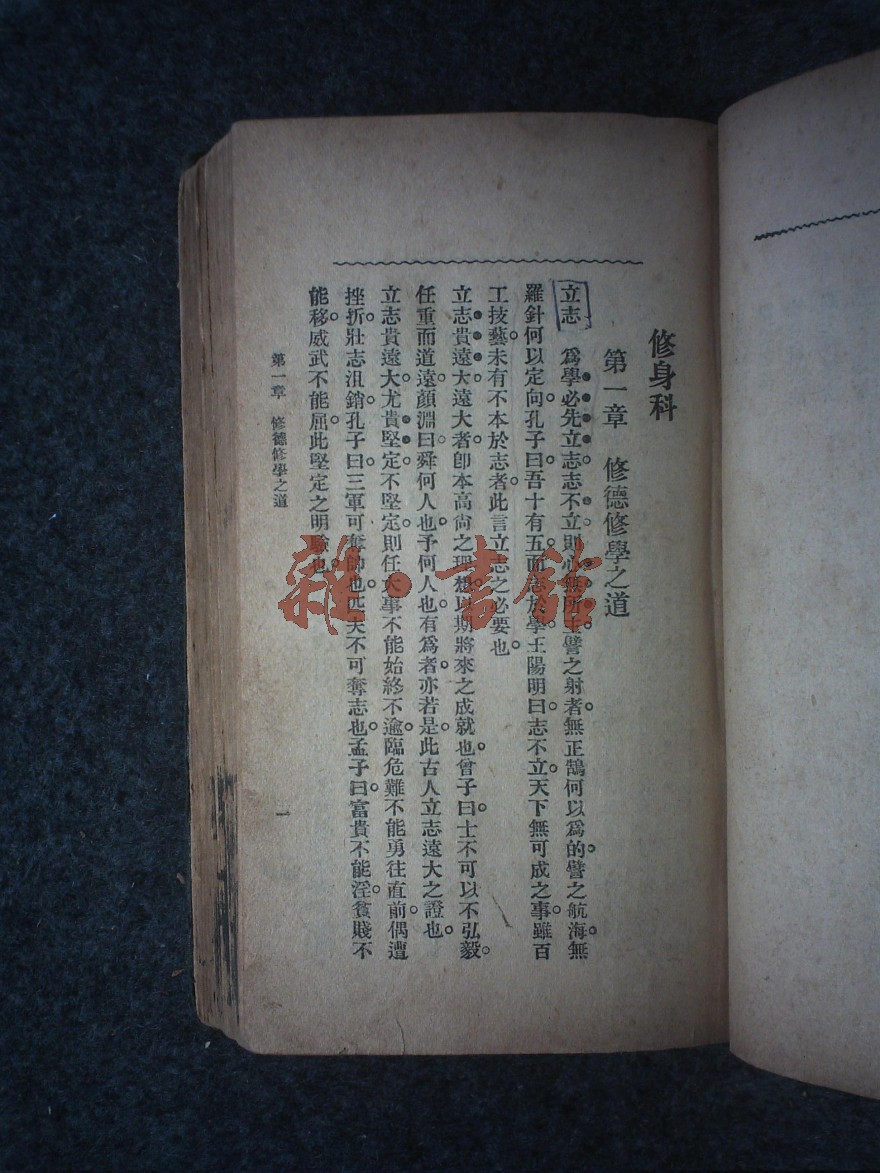 修身科
第一章　修德修學之道
立志　爲學必先立志志不立則心無所主譬之射者無正鵠何以爲的譬之航海無
羅針何以定向孔子曰吾十有五而志於學王陽明曰志不立天下無可成之事雖百
工技藝未有不本於志者此言立志之必要也
立志貴遠大遠大者卽本高尙之理想以期將來之成就也曾子曰士不可以不弘毅
任重而道遠顔淵曰舜何人也予何人也有爲者亦若是此古人立志遠大之證也
立志貴遠大尤貴堅定不堅定則任大事不能始終不逾臨危難不能勇往直前偶遭
挫折壯志沮銷孔子曰三軍可奪帥也匹夫不可奪志也孟子曰富貴不能淫貧賤不
能移威武不能屈此堅定之明驗也
第一章　修德修學之道
一
雜·書館